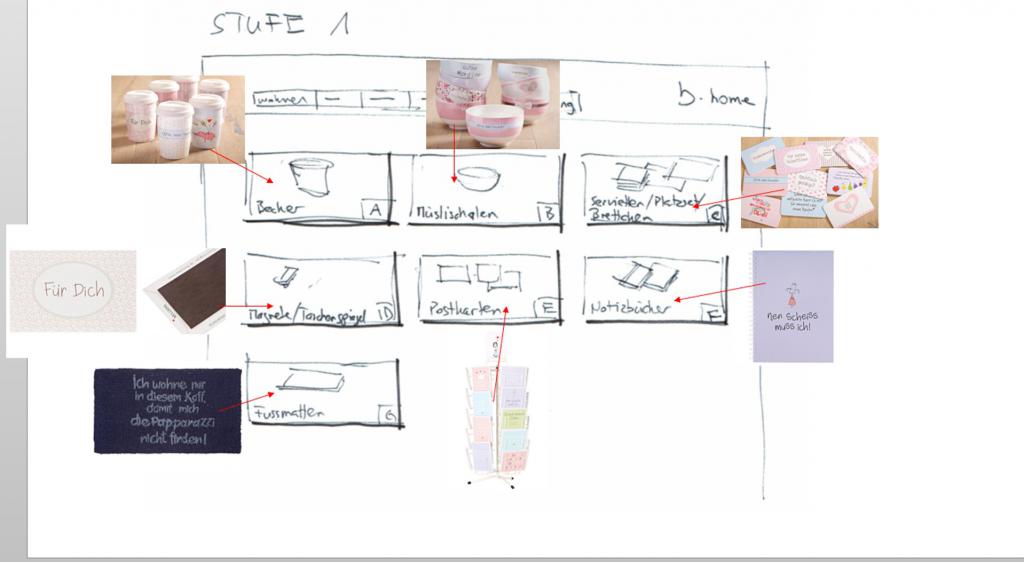 STUFE 1
wohnen
b.home
Für Dich
Guten Morgen
Becher
A
Müslischalen
B
Servietten/Platzset/
Brettchen
C
Magnete/Taschenspiegel
D
Postkarten
E
Notizbücher
F
Fussmatten
G
Für Dich
nen Scheiss
muss ich!
Ich wohne nur
in diesem Kaff,
damit mich
die Papparazzi
nicht finden!